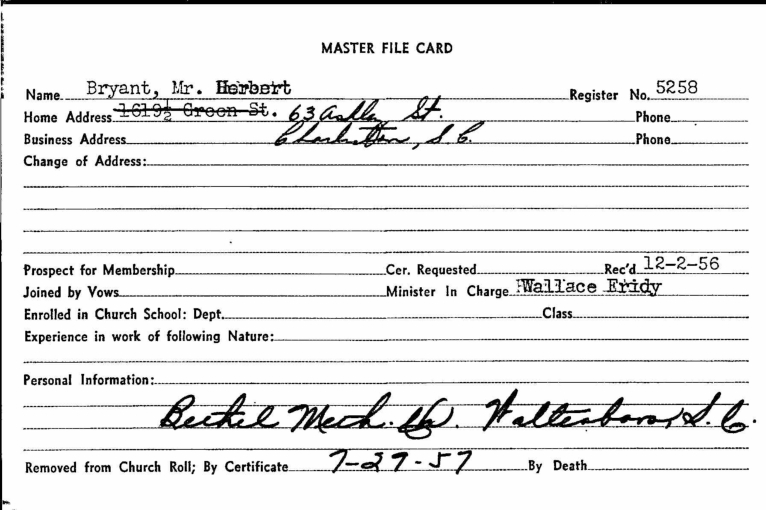 MASTER FILE CARD
Name Bryant, Mr. Herbert Register No. 5258
Home Address 1619½ Green St. 63 Ashley St. Phone
Business Address Charleston, S.C. Phone
Change of Address:
Prospect for Membership Cer. Requested Rec'd 12-2-56
Joined by Vows Minister In Charge Wallace Fridy
Enrolled in Church School: Dept. Class
Experience in work of following Nature:
Personal Information:
Bethel Meth. Ch. Walterboro, S.C.
Removed from Church Roll; By Certificate 7-29-57 By Death